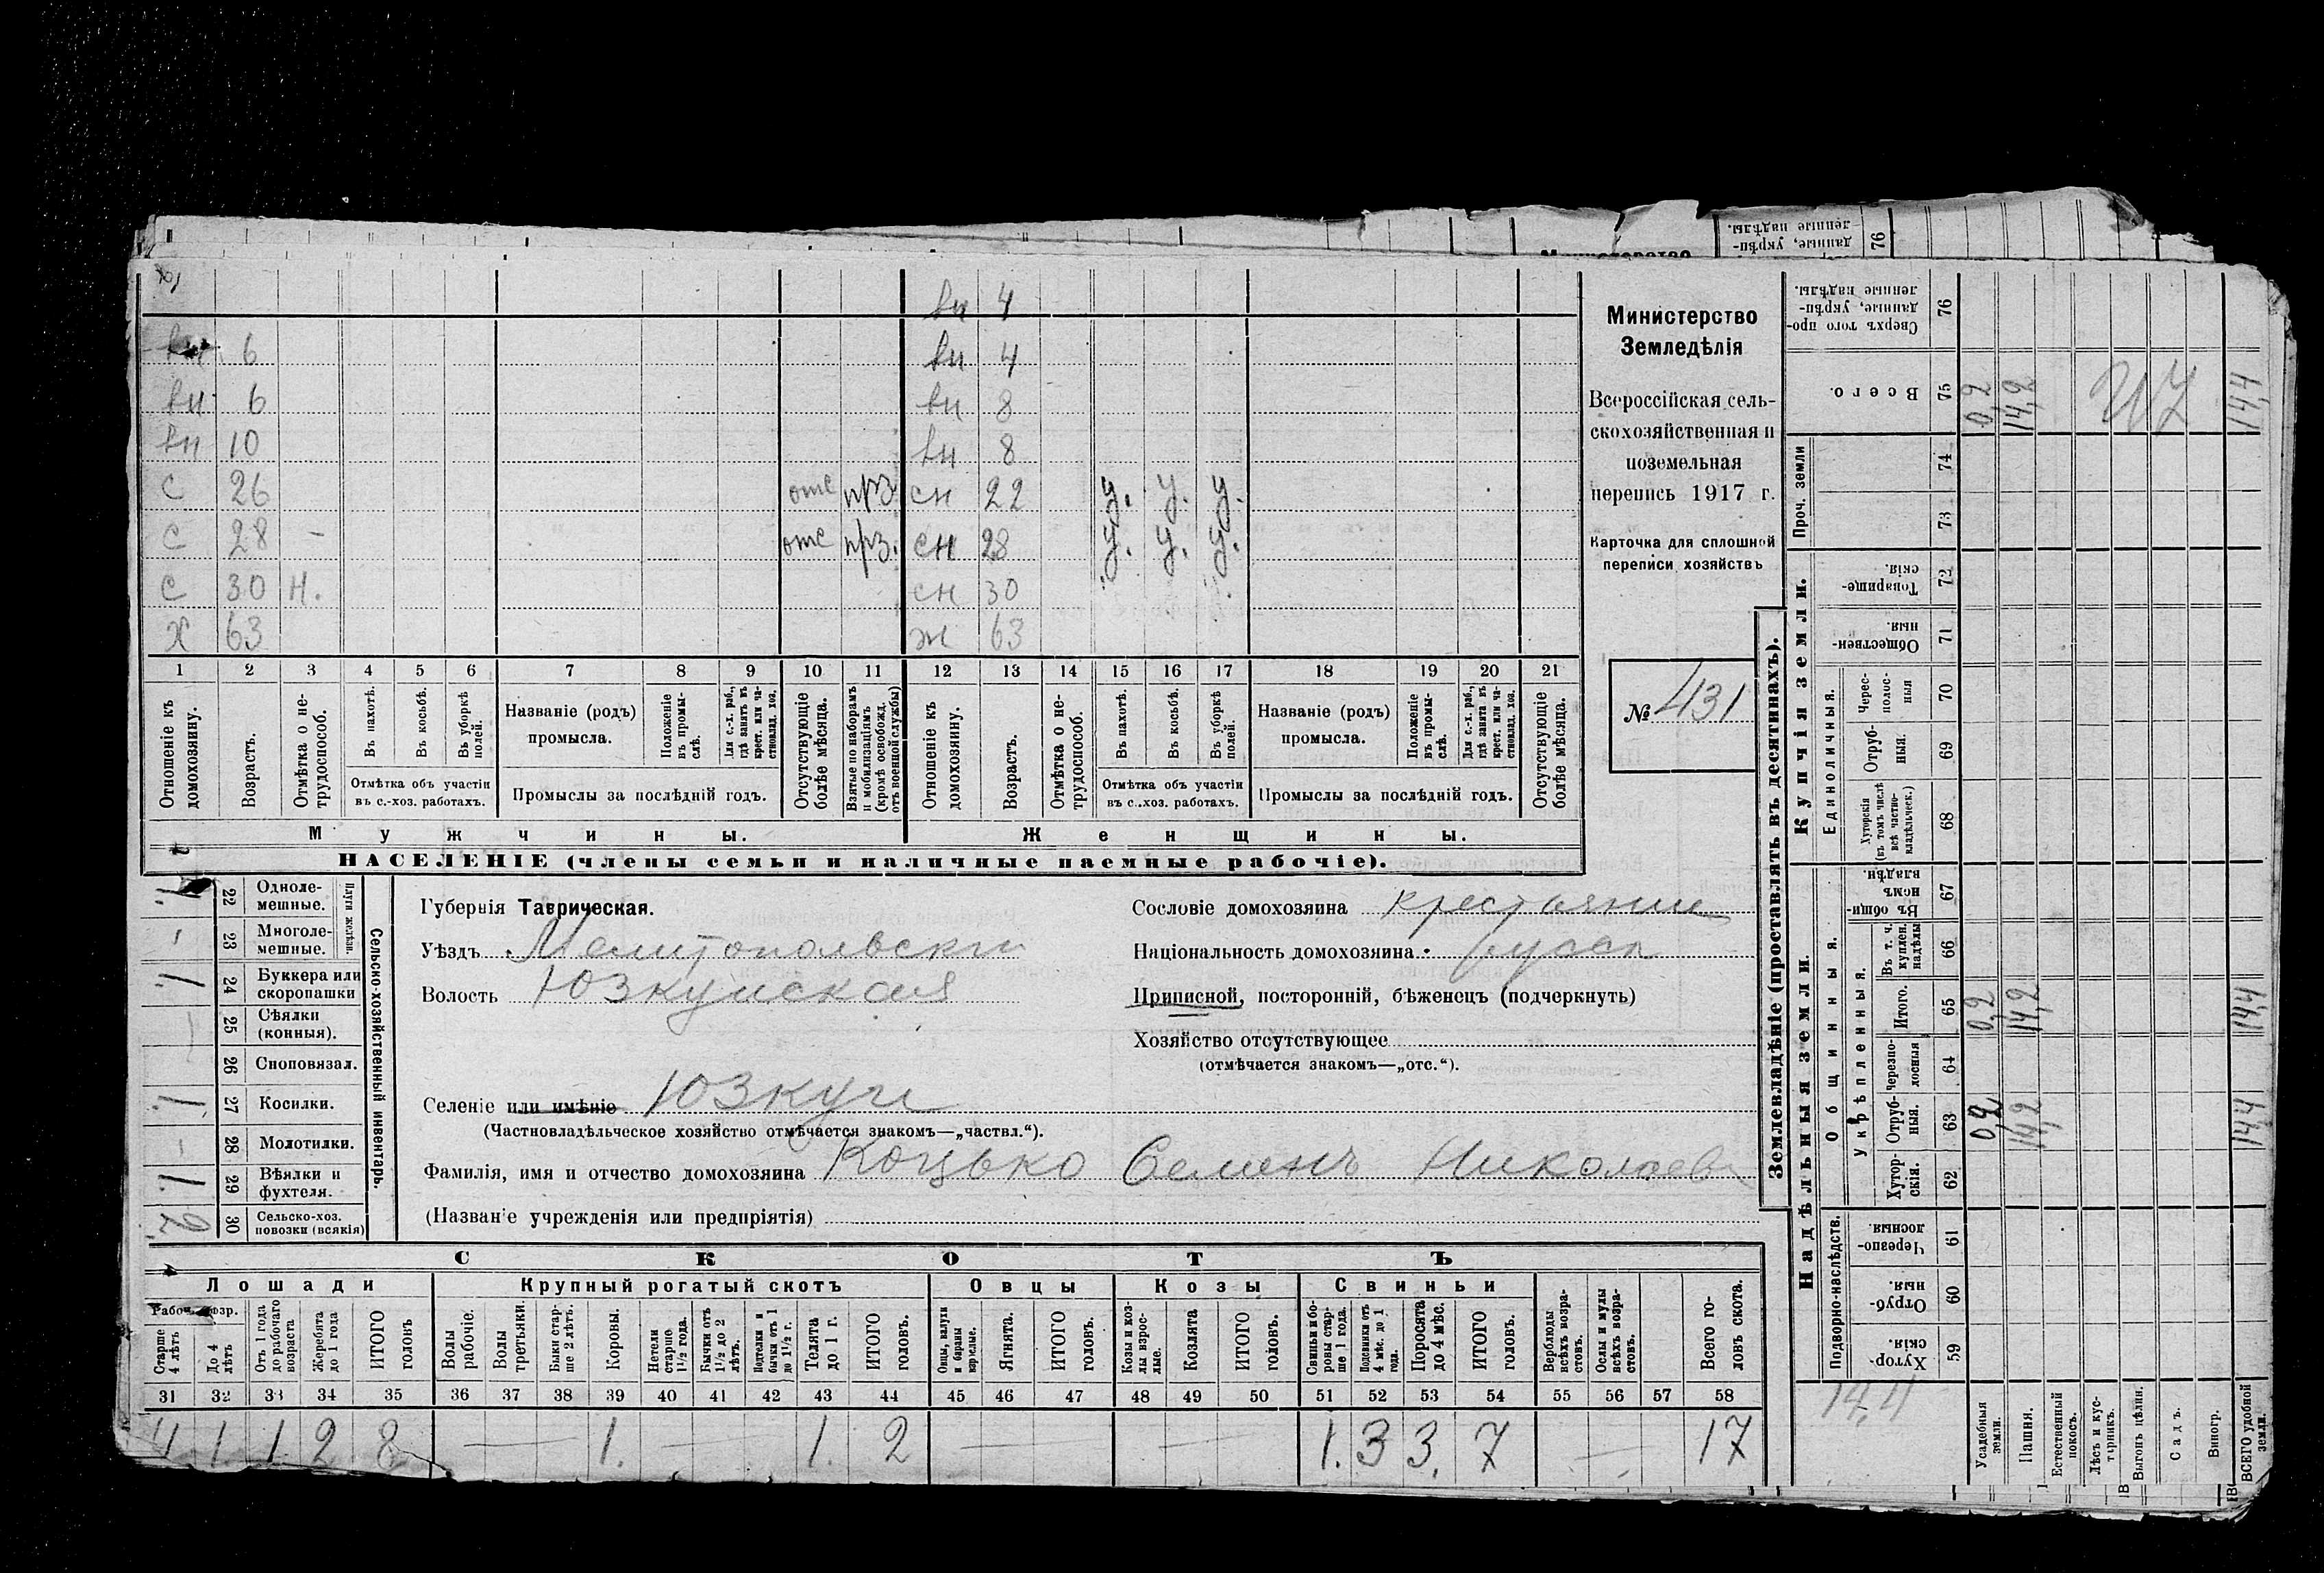 данные, укрѣп-
ленные надѣлы.
76
вн 4
вн 6 вн 4
вн 6 вн 8
вн 10 вн 8
с 26 отс прз сн 22 у. у. у.
с 28 – отс прз. сн 28 у. у. у.
с 30 н. сн 30
х 63 ж 63
1 2 3 4 5 6 7 8 9 10 11 12 13 14 15 16 17 18 19 20 21
Отношеніе къ домохозяину.
Возрастъ.
Отмѣтка о нетрудоспособ.
Въ пахотѣ.
Въ косьбѣ.
Въ уборкѣ полей.
Отмѣтка объ участіи
въ с.-хоз. работахъ.
Названіе (родъ)
промысла.
Положеніе въ промыслѣ.
Для с.-х. раб., гдѣ занятъ въ крест. или частновлад. хоз.
Промыслы за послѣдній годъ.
Отсутствующіе болѣе мѣсяца.
Взятые по наборамъ и мобилизаціямъ (кромѣ освобожд. отъ военной службы)
Отношеніе къ домохозяину.
Возрастъ.
Отмѣтка о нетрудоспособ.
Въ пахотѣ.
Въ косьбѣ.
Въ уборкѣ полей.
Отмѣтка объ участіи
въ с.-хоз. работахъ.
Названіе (родъ)
промысла.
Положеніе въ промыслѣ.
Для с.-х. раб., гдѣ занята въ крест. или частновлад. хоз.
Промыслы за послѣдній годъ.
Отсутствующіе болѣе мѣсяца.
Мужчины. Женщины.
НАСЕЛЕНІЕ (члены семьи и наличные наемные рабочіе).
Министерство
Земледѣлія
Всероссійская сель-
скохозяйственная и
поземельная
перепись 1917 г.
Карточка для сплошной
переписи хозяйствъ
№ 431
Сельско-хозяйственный инвентарь.
Плуги желѣзн.
1 22 Одноле-
мешные.
- 23 Многоле-
мешные.
1 24 Буккера или
скоропашки
- 25 Сѣялки
(конныя).
26 Сноповязал.
1 27 Косилки.
- 28 Молотилки.
1 29 Вѣялки и
фухтеля.
2 30 Сельско-хоз.
повозки (всякія)
Губернія Таврическая.
Уѣздъ Мелитопольски
Волость Юзкуйская
Селеніе или имѣніе Юзкуи
(Частновладѣльческое хозяйство отмѣчается знакомъ—„частвл.“).
Фамилія, имя и отчество домохозяина Коцько Семенъ Николаев
(Названіе учрежденія или предпріятія)
Сословіе домохозяина крестьянин
Національность домохозяина русск
Приписной, посторонній, бѣженецъ (подчеркнуть)
Хозяйство отсутствующее
(отмѣчается знакомъ—„отс.“).
СКОТЪ
Лошади Крупный рогатый скотъ Овцы Козы Свиньи
Рабоч. возр.
Старше 4 лѣтъ
До 4 лѣтъ
Отъ 1 года до рабочаго возраста
Жеребята до 1 года
ИТОГО головъ
Волы рабочіе.
Волы третьяки.
Быки старше 2 лѣтъ.
Коровы.
Нетели старше 1½ года.
Бычки отъ 1½ до 2 лѣтъ.
Подтелки и бычки отъ 1 до 1½ г.
Телята до 1 г.
ИТОГО головъ.
Овцы, валухи и бараны взрослые.
Ягнята.
ИТОГО головъ.
Козы и козлы взрослые.
Козлята
ИТОГО головъ.
Свиньи и боровы старше 1 года.
Подсвинки отъ 4 мѣс. до 1 года.
Поросята до 4 мѣс.
ИТОГО головъ.
Верблюды всѣхъ возрастовъ.
Ослы и мулы всѣхъ возрастовъ.
Всего головъ скота.
31 32 33 34 35 36 37 38 39 40 41 42 43 44 45 46 47 48 49 50 51 52 53 54 55 56 57 58
4 1 1 2 8 — 1. — 1. 2 — — 1. 3 3. 7 — 17
Землевладѣніе (проставлять въ десятинахъ).
Купчія земли.
Надѣльныя земли.
Сверхъ того про-
данные, укрѣп-
ленные надѣлы.
76
Всего. 75 0,2 14,2 14,4
Проч. земли
74
73
Товарище-
скія. 72
Обществен-
ныя. 71
Единоличныя.
Черес-
полос-
ныя 70
Отруб-
ныя. 69
Хуторскія
(въ томъ числѣ
всѣ частно-
владѣльческ.) 68
Общинныя.
Въ общин-
номъ
владѣн. 67
Укрѣпленныя.
Въ т. ч.
куплен.
надѣлы 66
Итого. 65 0,2 14,2 14,4
Черезпо-
лосныя 64
Отруб-
ныя. 63 0,2 14,2 14,4
Хутор-
скія. 62
Подворно-наслѣдств.
Черезпо-
лосныя 61
Отруб-
ныя. 60
Хутор-
скія. 59
14,4
Усадебныя
земли.
Пашня.
Естественный
покосъ.
Лѣсъ и кус-
тарникъ.
Выгонъ цѣлин.
Садъ.
Виногр.
ВСЕГО удобной
земли.